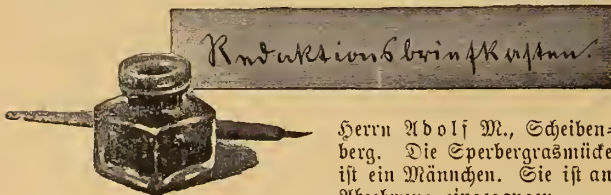 Redaktionsbriefkasten.
Herrn Adolf M., Scheiben-
berg. Die Sperbergrasmücke
ist ein Männchen. Sie ist an